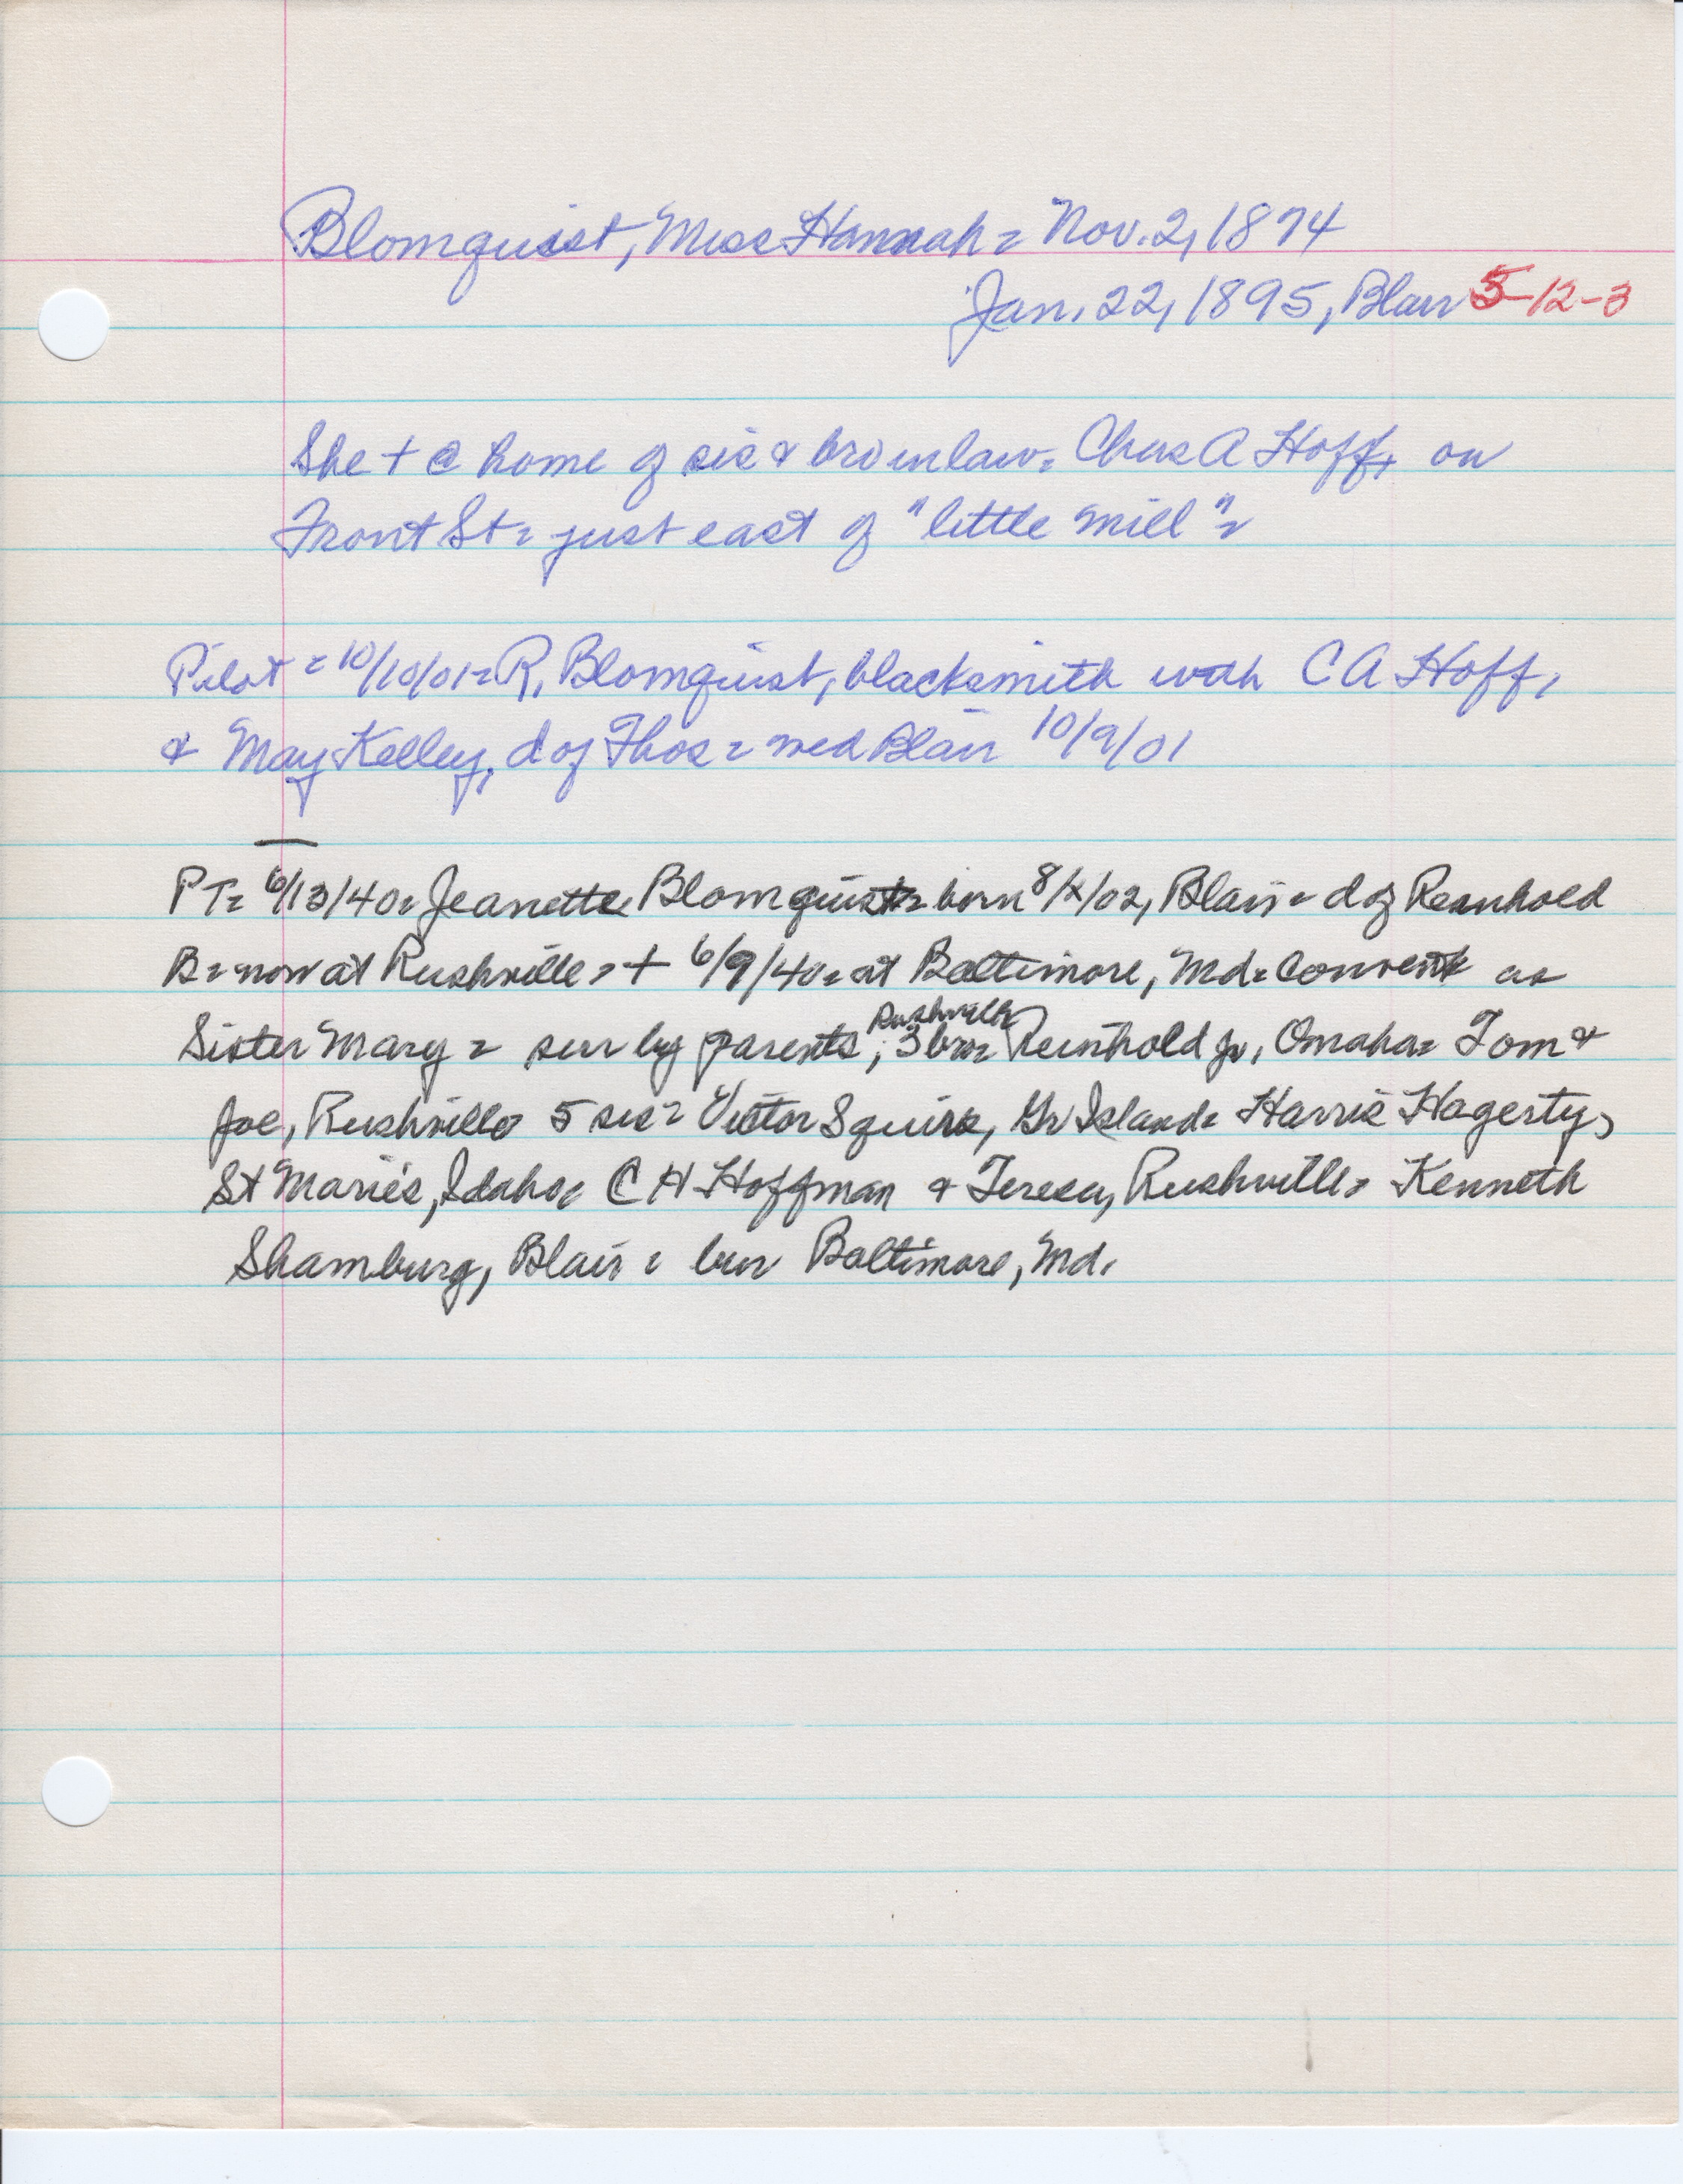 Blomquist, Miss Hannah = Nov. 2, 1874
Jan. 22, 1895, Blair 5-12-3
She + @ home of sis & bro inlaw = Chas A Hoff, on
Front St = just east of "little mill" =
Pilot = 10/10/01 = R. Blomquist, blacksmith with C A Hoff,
& May Kelley, d of Thos = wed Blair 10/9/01
PT = 6/13/40 = Jeanette Blomquist = born 8/x/02, Blair = d of Reinhold
B = now at Rushville = + 6/9/40 = at Baltimore, Md = Convent as
Rushville
Sister Mary = sur by parents, 3 bro = Reinhold Jr, Omaha = Tom &
Joe, Rushville 5 sis = Victor Squirs, Gr Island = Harris Hagerty,
St Marie's, Idaho = C H Hoffman & Teresa, Rushville = Kenneth
Shamburg, Blair = bur Baltimore, Md.